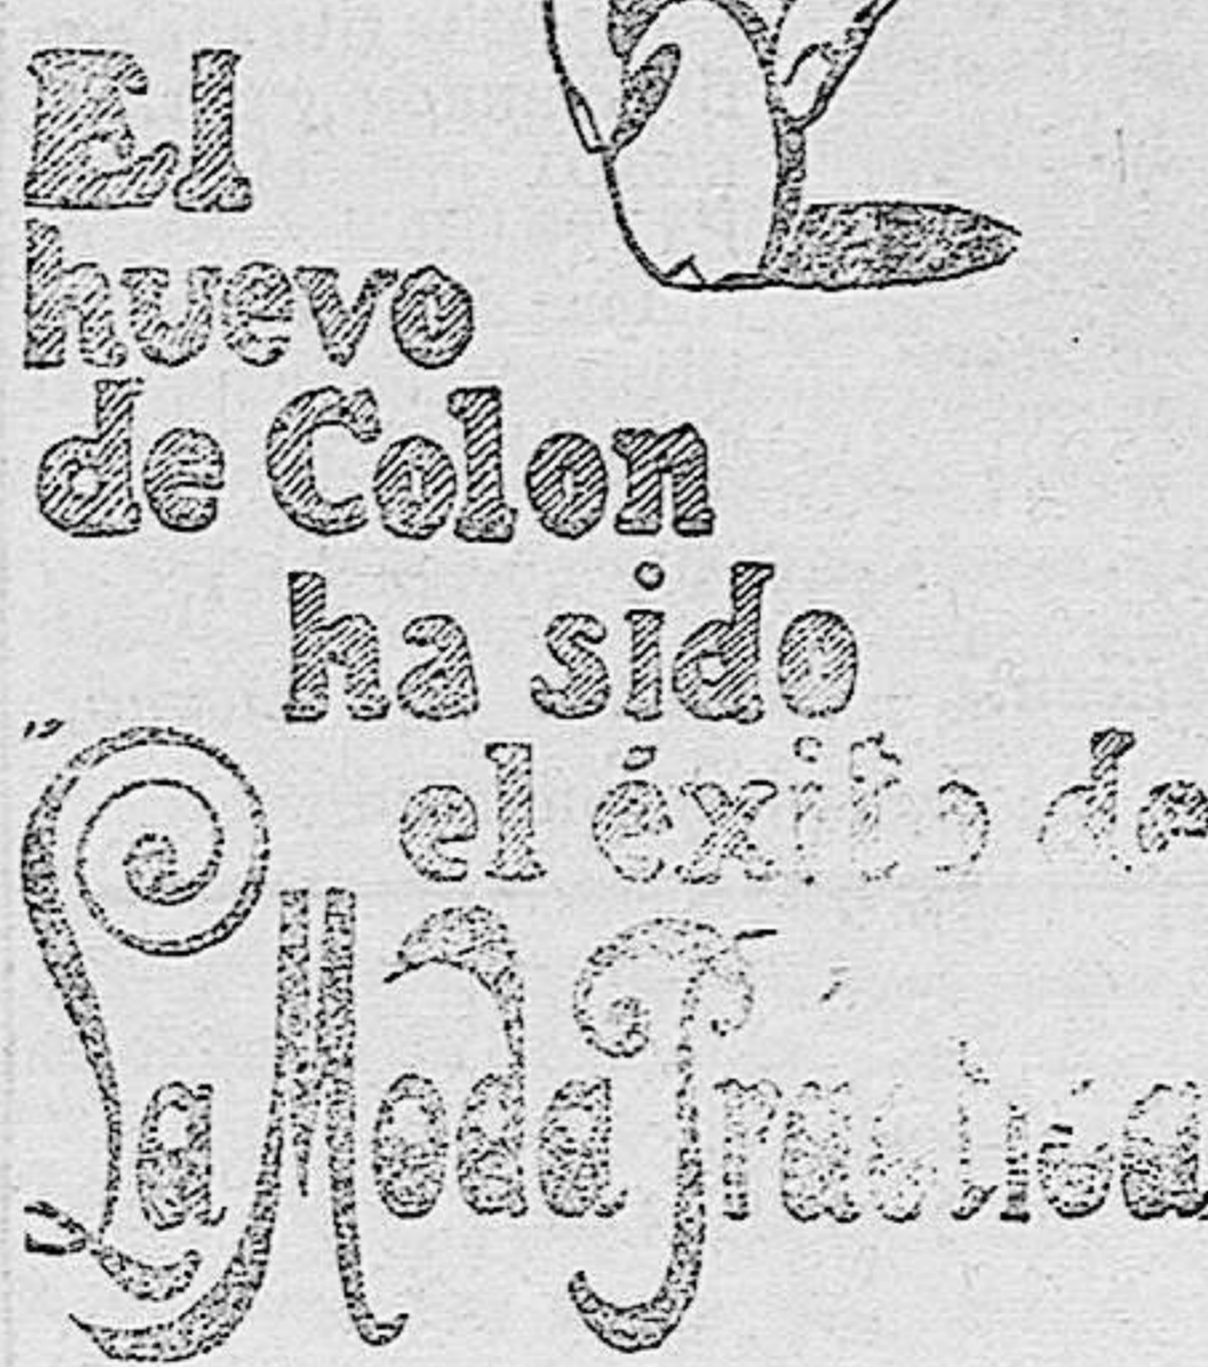 El
huevo
de Colon
ha sido
el éxito de
"La Moda Práctica